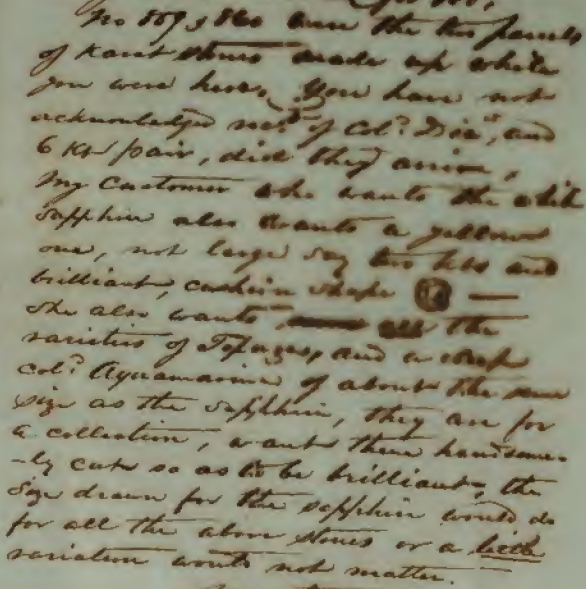 No 859 & 860 are the two parcels
of Karat stones made up while
you were here. You have not
acknowledged rec.t of Col.d Dia.d, and
6 Kt pair, did they arrive,
My Customer who wants the white
sapphire also wants a yellow
one, not large say two kts and
brilliant, cushion shape —
she also wants all the
varieties of Topazes, and a deep
col.d Aquamarine of about the same
size as the sapphire, they are for
a collection, want them handsome-
-ly cut so as to be brilliant, the
size drawn for the sapphire would do
for all the above stones or a little
variation would not matter.